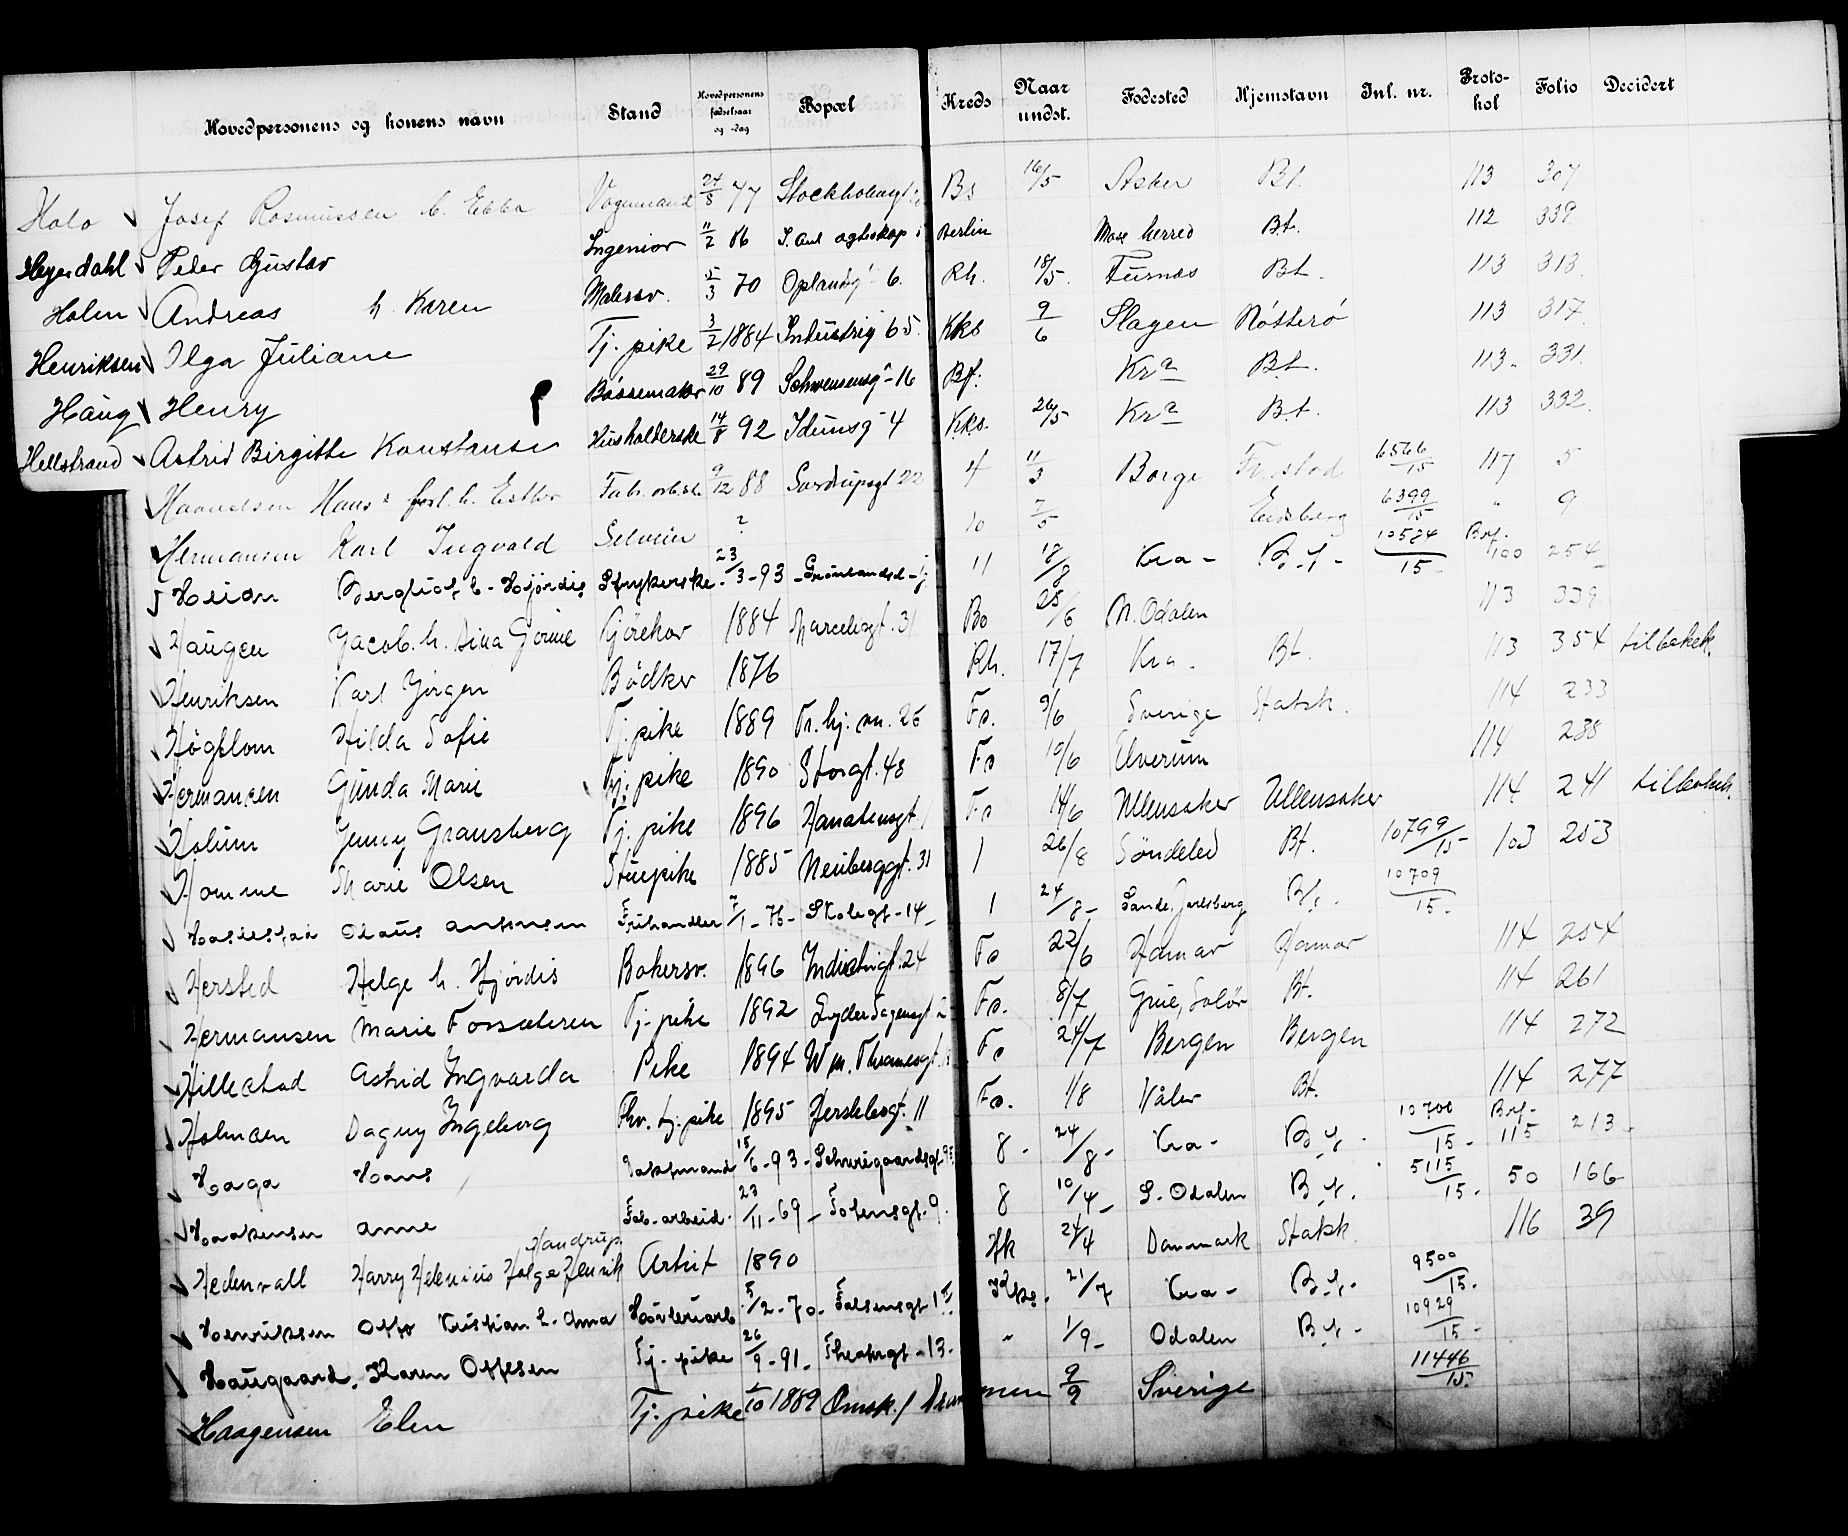 Hovedpersonens og konens navn Stand Hovedpersonens fødselsaar og -dag Bopæl Kreds Naar undst. Fødested Hjemstavn Inl. nr. Protokol Folio Decidert
Holo Josef Rasmussen h. Ebba Vognmand 24/8 77 Bs 16/5 Asker Bt. 113 307
Heyerdahl Peter Gustav Ingeniør 11/2 86 Berlin Moss herred Bt. 112 339
Holen Andreas h. Karen Malersv. 5/3 70 Oplandsg 6. Rh. 18/5. Furnes Bt. 113 313.
Henriksen Olga Juliane Tj. pike 3/2 1884 Industrig 65. Kks 9/6 Slagen Nøtterø 113 317
Haug Henry Bøssemaker 29/10 89 Schwensensg - 16 Bf. Kra Bt. 113. 331.
Hellstrand Astrid Birgitte Konstanse Husholderske 14/8 92 Idunsg 4 Kks. 26/5 Kra Bt. 113 332.
Hans forl. h. Ester Fabr. arb. 9/12 88 Sverdrupsgt 22 4 11/3 Borge Fr. stad 6566/15 117 5
Hermansen Karl Ingvald ? 10 7/5 Eidsberg 6399/15 " 9
Heian Bergliot, h. Hjørdis Strykerske - 23/3 - 93 11 18/8 Kra - B. t. - 10524/15 100 254
Haugen Jacob. h. Dina Gorine Kjørekar 1884 Marcelisgt. 31 Bo 25/6 N. Odalen 113 339
Henriksen Karl Jørgen Bødker 1876 Rh. 17/7 Kra. Bt. 113 354 tilbakek.
Høgblom Hilda Sofie Tj. pike 1889 Dr. hj. vn. 25 Fo. 9/6 Sverige Statsk. 114 233
Hermansen Gunda Marie Tj. pike 1890 Storgt. 48 Fo 10/6 Elverum 114 238
Holum Jenny Gransberg Tj. pike 1896 Fo 14/6 Ullensaker Ullensaker 114 241 tilbakek.
Homme Marie Olsen Stuepike 1885 Neuberggt. 31 1 26/8 Søndeled Bt. 10799/15 103 253
Olaus Antonsen Frihandler 7/1 - 76 - Skolegt - 14 - 1 24/8 - Sande, Jarlsberg B. t. - 10709/15 -
Hersted Helge h. Hjørdis Bakersv. 1896 Industrigt. 24 Fo 22/6 Hamar Hamar 114 254
Hermansen Marie Fossæteren Tj. pike 1892 Lyder Sagensgt 2 Fo. 8/7 Grue, Solør Bt. 114 261
Hillestad Astrid Ingvarda Pike 1894 Wm. Thranesgt. Fo 24/7 Bergen Bergen 114 272
Holmsen Dagny Ingeborg Fhv. tj. pike 1895 Herslebsgt. 11 Fo. 1/8 Våler Bt. 114 277
Haga Hans 15/6 - 93 - Schweigaardsgt 8 - 24/8 - Kra - B. t. - 10700/15 - 115 213.
Haakensen Anne Fab. arbeid. 23/11 - 69 - Totensgt. 9. 8 10/4 - S. Odalen B. t. 5115/15. 50 166
Handrup
Hedenvall Harry Helenius Holger Henrik Artist 1890 Hk 24/4 Danmark Statsk. 116 39
Henriksen Otto Kristian h. Anna 5/2 - 70 - Falsensgt 1 Kks. 21/7 Kra - B. t. - 9500/15 -
Haugaard, Karen Ottesen Tj. pike 26/9 - 91 - Theatergt - 13 - " 1/9 - Odalen B. t. - 10929/15 -
Haagensen Elen Tj. pike 1/10 1889 Ømsk. / Drammen 9/9 Sverige 11446/15